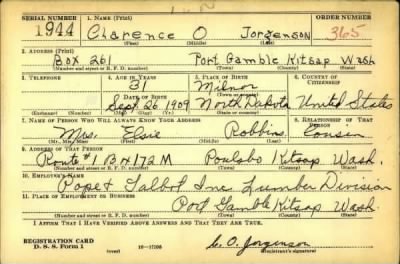 SERIAL NUMBER 1. NAME (Print) ORDER NUMBER
1944 Clarence O Jorgenson 365
(First) (Middle) (Last)
2. ADDRESS (Print)
Box 261 Port Gamble Kitsap Wash
(Number and street or R. F. D. number) (Town) (County) (State)
3. TELEPHONE 4. AGE IN YEARS 5. PLACE OF BIRTH 6. COUNTRY OF CITIZENSHIP
31 Milnor
DATE OF BIRTH (Town or county)
Sept. 26 1909 North Dakota United States
(Exchange) (Number) (Mo.) (Day) (Yr.) (State or country)
7. NAME OF PERSON WHO WILL ALWAYS KNOW YOUR ADDRESS 8. RELATIONSHIP OF THAT PERSON
Mrs. Elsie Robbins Cousin
(Mr., Mrs., Miss) (First) (Middle) (Last)
9. ADDRESS OF THAT PERSON
Route #1 Bx 172 M Poulsbo Kitsap Wash.
(Number and street or R. F. D. number) (Town) (County) (State)
10. EMPLOYER'S NAME
Pope & Talbot Inc Lumber Division
11. PLACE OF EMPLOYMENT OR BUSINESS
Port Gamble Kitsap Wash.
(Number and street or R. F. D. number) (Town) (County) (State)
I AFFIRM THAT I HAVE VERIFIED ABOVE ANSWERS AND THAT THEY ARE TRUE.
REGISTRATION CARD
D. S. S. Form 1 16—17105 C. O. Jorgenson
(Registrant's signature)